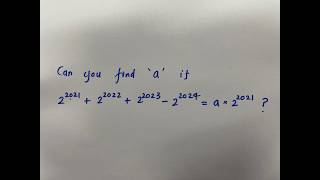 Can you find 'a' if
2^2021 + 2^2022 + 2^2023 - 2^2024 = a × 2^2021 ?